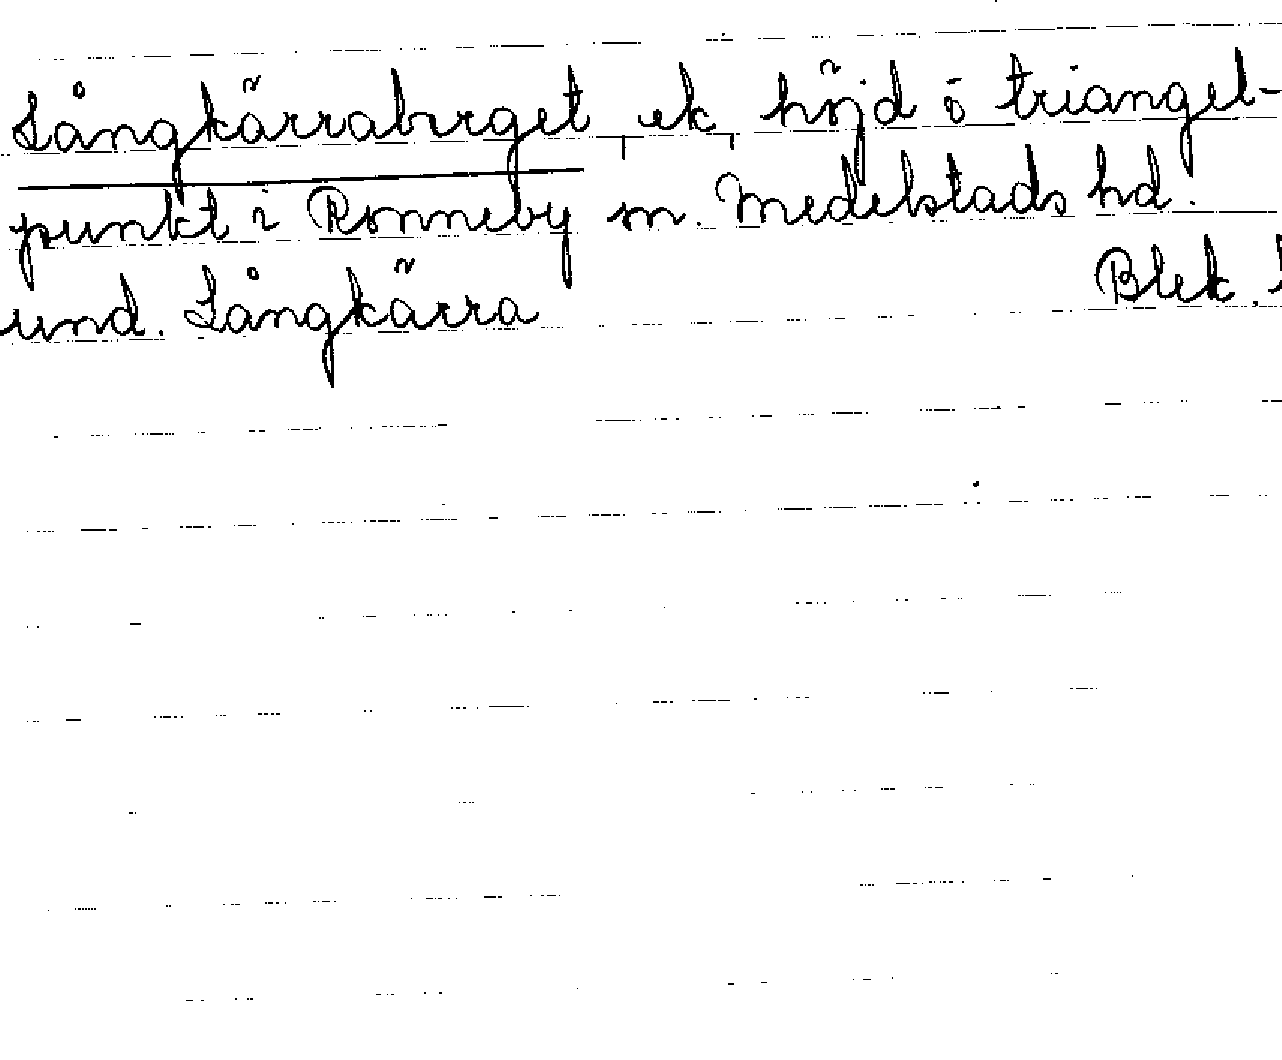 Långkärraberget, ek, höjd o triangel-
punkt i Ronneby sn. Medelstads hd.
Blek. l
und. Långkärra